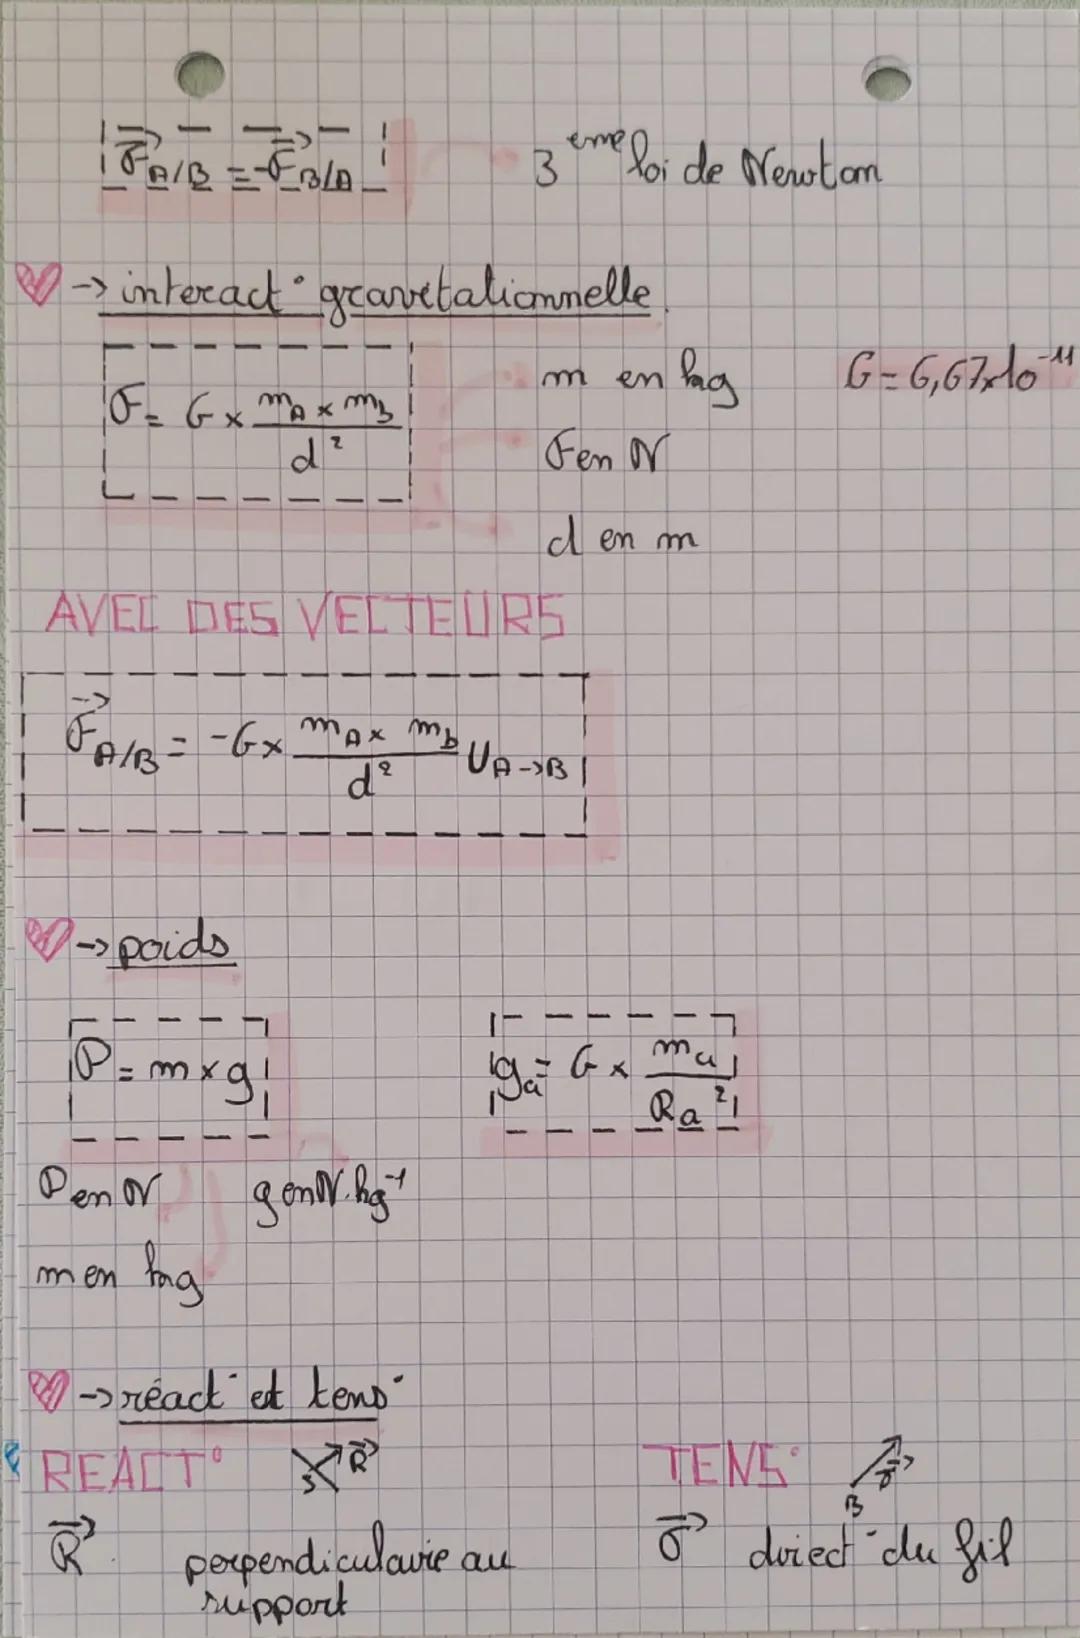 F⃗A/B = -F⃗B/A
3eme loi de Newton
-> interact° gravitationnelle
F = G x (mA x mB)/d²
m en kg
G = 6,67x10⁻¹¹
F en N
d en m
AVEC DES VECTEURS
F⃗A/B = -G x (mA x mb)/d² UA->B
-> poids
P = m x g
ga = G x ma/Ra²
P en N
g en N.kg⁻¹
m en kg
-> réact° et tens°
REACT°
S R⃗
TENS°
B T⃗
R⃗ perpendiculaire au
support
T⃗ direct° du fil